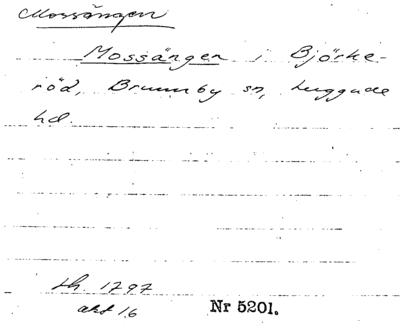 Mossängen
Mossängen i Björke-
röd, Brunnby sn, Luggude
hd.
th. 1797
akt 16
Nr 5201.